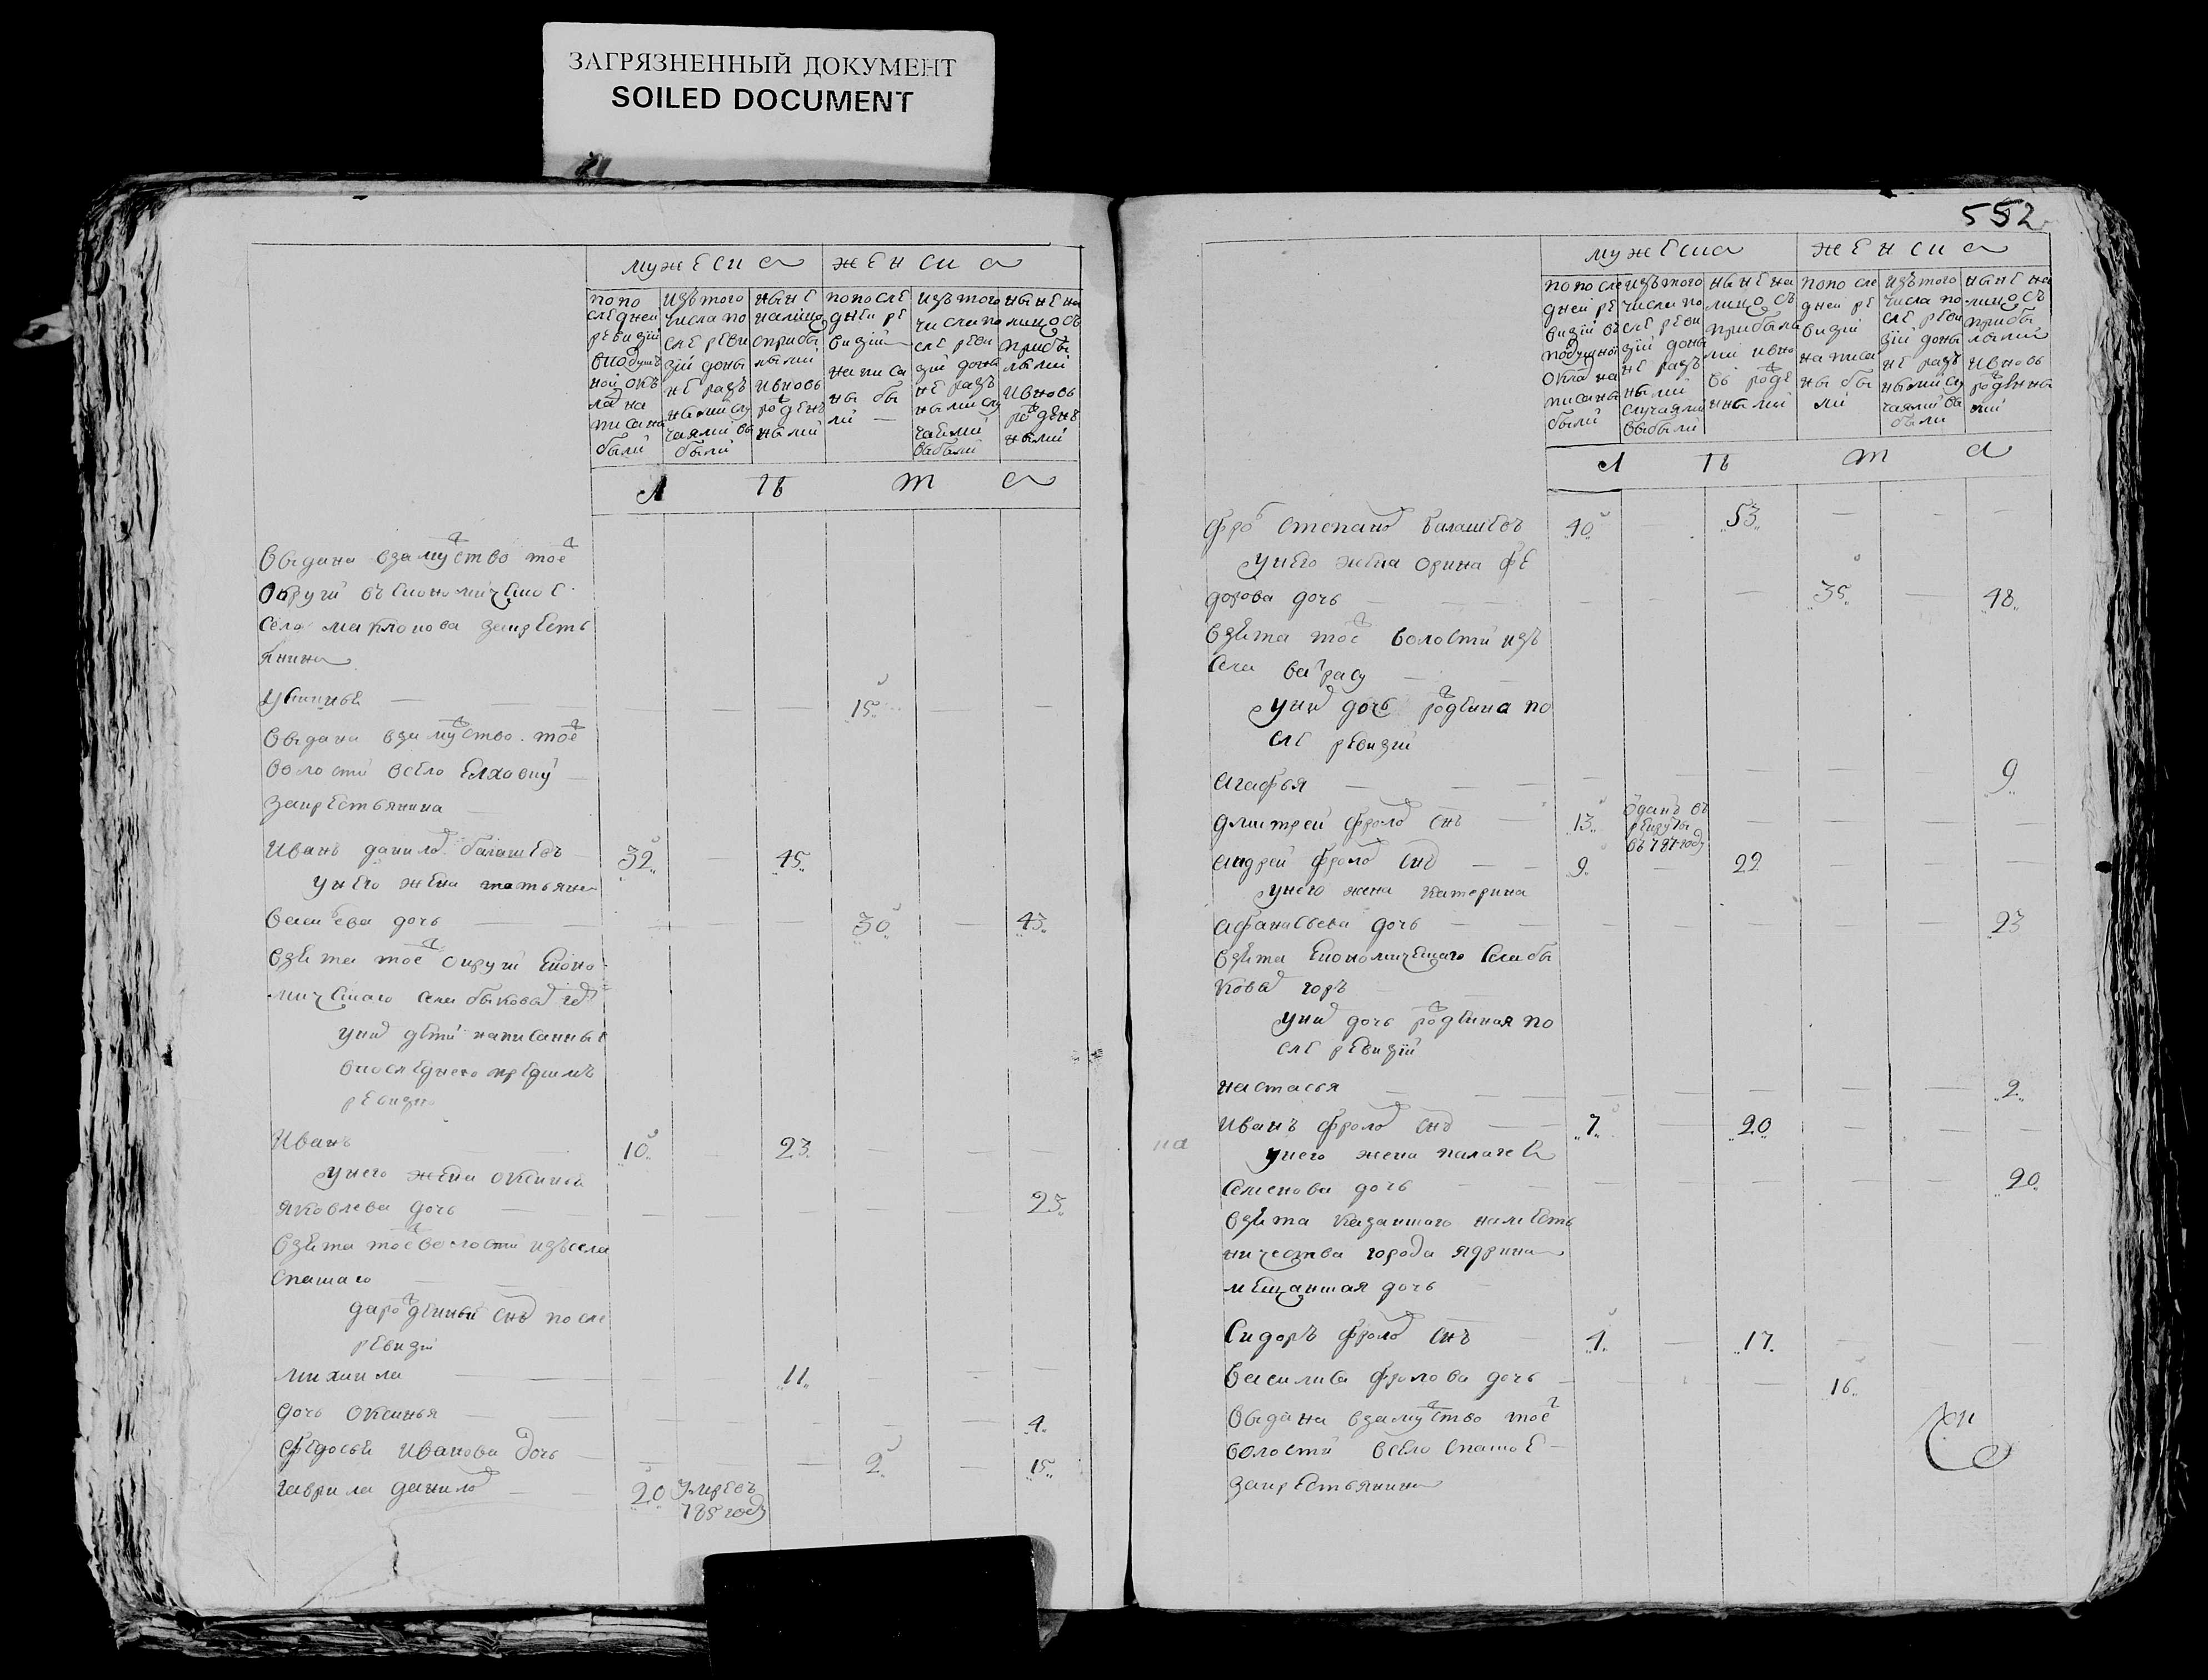 ЗАГРЯЗНЕННЫЙ ДОКУМЕНТ
SOILED DOCUMENT
мужеска женска
по по следней ревизии в подушной окладъ написаны были
изъ того числа после ревизии до ныне разъными случаями выбыли
ныне на лицо с прибылыми и вновь рожденъными
по после дней ревизии написаны были
изъ того числа после ревизии до ныне разъными случаеми выбыли
ныне на лицо съ прибылыми и вновь рожденъными
л ѣ т а
выдана взамуство тое
округи въ економическое
село маклокова за кресть
янина
Устинья 15
выдана взамуство тое
волости в село елховку
за крестьянина
иванъ данилов балашевъ 32 45
у него жена татьяна
васильева дочь 30 43
взята тое округи еконо
мическаго села быковы гор
у них дети написанныя
в последнею пред симъ
ревизию
Иванъ 10 23
у него жена оксинья
яковлева дочь 23
взята тое волости изъ села
спаскаго
да рожденный снъ после
ревизии
михаила 11
дочь оксинья 4
федосья иванова дочь 2 15
гаврила данилов 20 Умре въ
785 году
552
мужеска женска
по последней ревизии въ подушной окла на писаны были
изъ того числа после ревизии до ны не разъ ными случаями выбыли
ныне на лицо съ прибылыми и вновь роже нными
по последней ревизии написаны были
изъ того числа после ревизии до ны не разъ ными случаями выбыли
ныне на лицо съ прибылыми и вновь рожденны ми
л ѣ т а
фро степанов балашевъ 40 53
у него жена орина фе
дорова дочь 35 48
взята тое волости изъ
села
у них дочь рожденна по
сле ревизии
агафья 9
дмитрей фролов снъ 13 оданъ въ
рекруты
въ 787 году
андрей фролов снъ 9 22
у него жена катерина
афанасьева дочь 23
взята економическаго села бы
ковы горъ
у них дочь рожденная по
сле ревизии
настасья 2
иванъ фролов снъ 7 20
у него жена палагея
семенова дочь 20
взята казанскаго наместь
ничества города ядрина
мещанская дочь
Сидоръ фролов снъ 4 17
василиса фролова дочь 16
выдана взамуство тое
волости в село спаское
за крестьянина